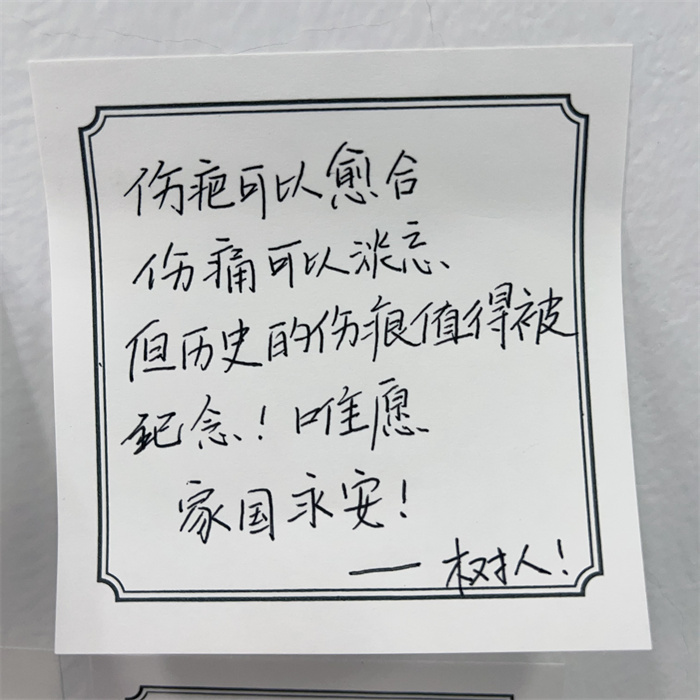 伤疤可以愈合
伤痛可以淡忘
但历史的伤痕值得被
纪念！唯愿
家国永安！
——树人！